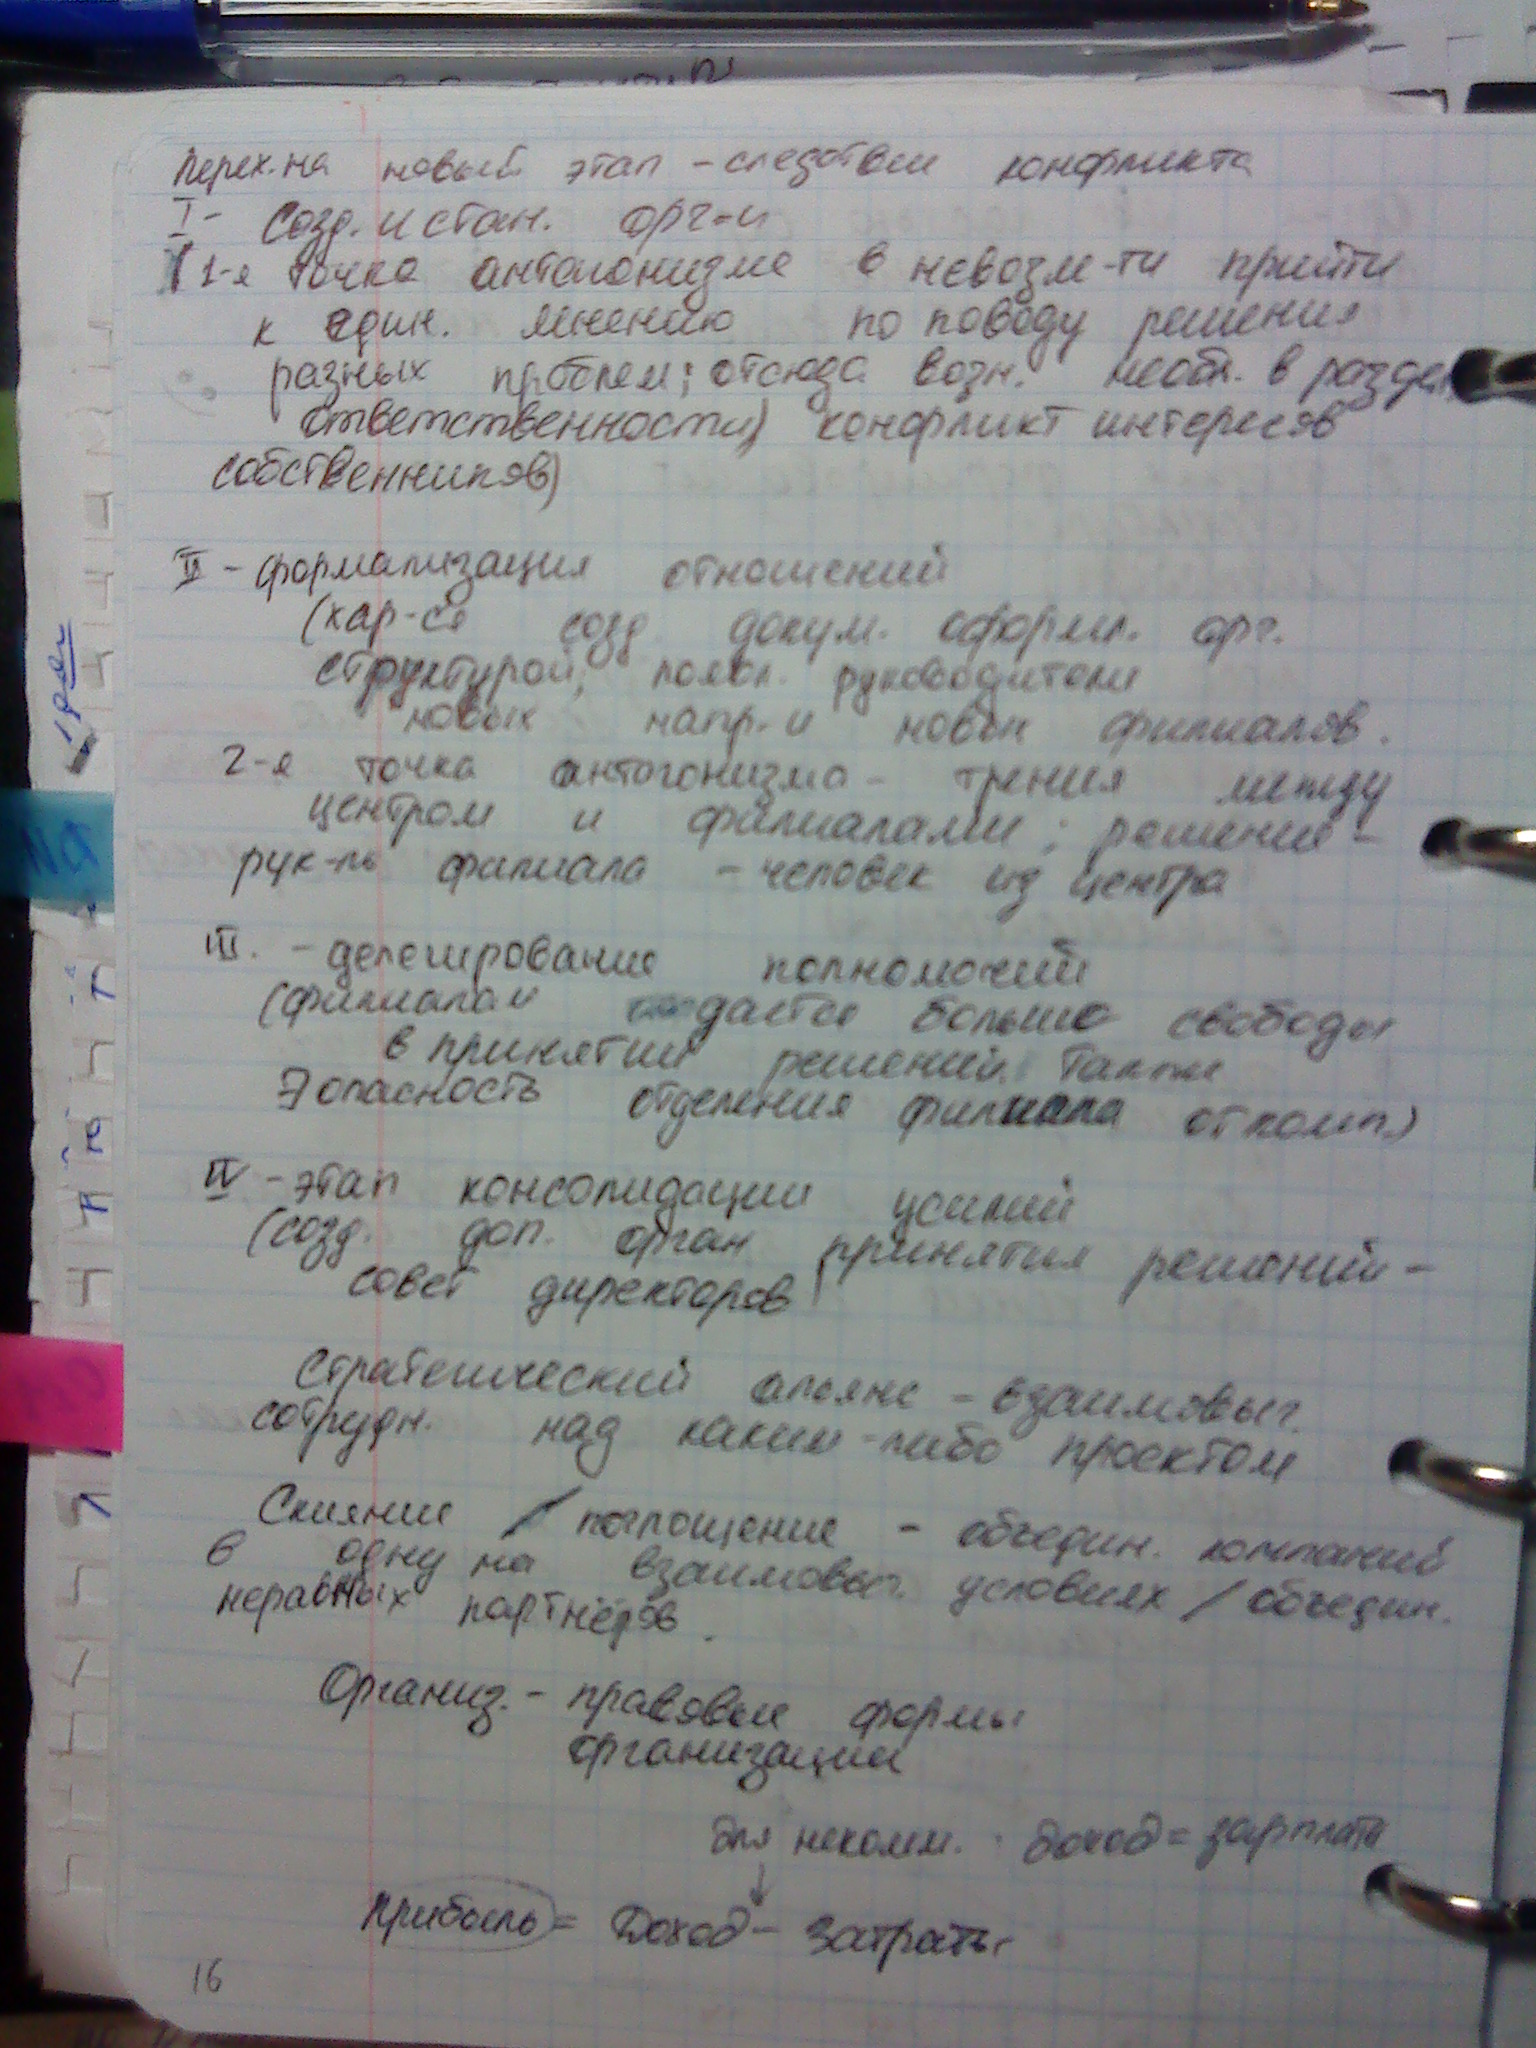 Перех. на новый этап - следствие конфликта
I - созд. и стан. орг-и
(1-я точка антагонизма в невозм-ти прийти
к един. мнению по поводу решения
разных проблем; отсюда возн. необх. в раздел
ответственности) конфликт интересов
собственников)
II - формализация отношений
(хар-ся созд. докум. оформл. орг.
структурой; появл. руководители
новых напр. и новых филиалов.
2-я точка антогонизма - трения между
центром и филиалами; решение -
рук-ль филиала - человек из центра
III. - делегирование полномочий
(филиалам дается больше свободы
в принятии решений. Также
∃ опасность отделения филиала от комп.)
IV - этап консолидации усилий
(созд. доп. орган принятия решений -
совет директоров)
Стратегический альянс - взаимовыг.
сотрудн. над каким-либо проектом
Слияние / поглощение - объедин. компаний
в одну на взаимовыг. условиях / объедин.
неравных партнёров.
Организ. - правовые формы
организации
для неком. доход = зарплата
↓
Прибыль = Доход - Затраты
16